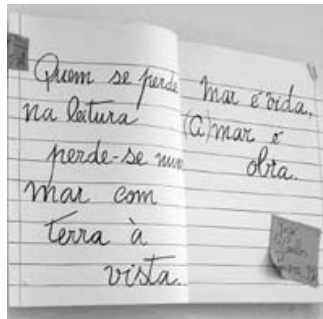 Quem se perde
na leitura
perde-se num
mar com
terra à
vista.
Mar é vida,
(a)mar é
obra.